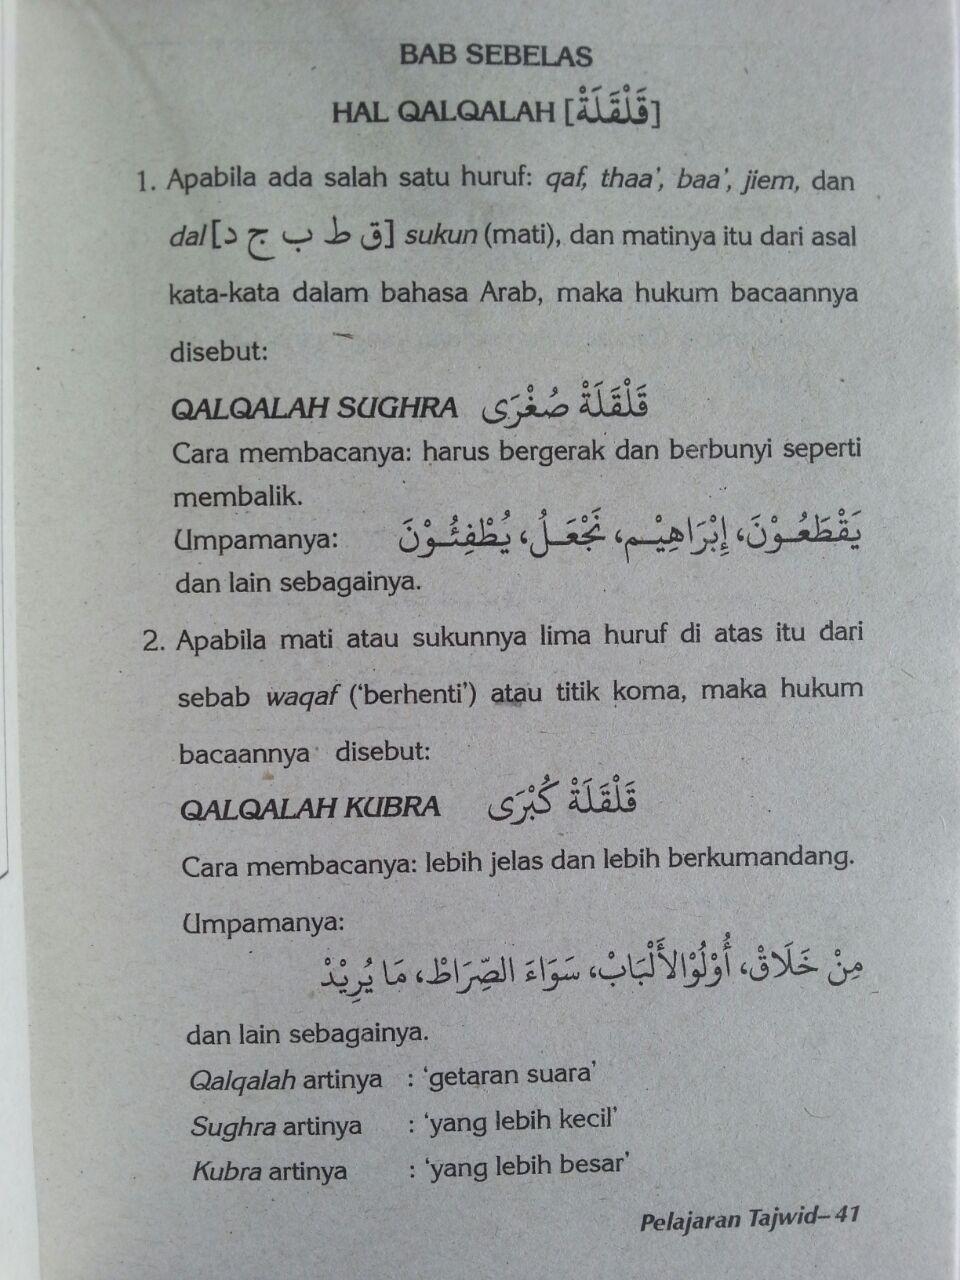 BAB SEBELAS
HAL QALQALAH [قَلْقَلَةْ]
1. Apabila ada salah satu huruf: qaf, thaa', baa', jiem, dan
dal [ق ط ب ج د] sukun (mati), dan matinya itu dari asal
kata-kata dalam bahasa Arab, maka hukum bacaannya
disebut:
QALQALAH SUGHRA قَلْقَلَةْ صُغْرَى
Cara membacanya: harus bergerak dan berbunyi seperti
membalik.
Umpamanya: يَقْطَعُـوْنَ، إِبْرَاهِيْـم، نَجْعَـلُ، يُطْفِئُـوْنَ
dan lain sebagainya.
2. Apabila mati atau sukunnya lima huruf di atas itu dari
sebab waqaf ('berhenti') atau titik koma, maka hukum
bacaannya disebut:
QALQALAH KUBRA قَلْقَلَةْ كُبْرَى
Cara membacanya: lebih jelas dan lebih berkumandang.
Umpamanya:
مِنْ خَلَاقْ، أُوْلُوْالأَلْبَابْ، سَوَاءَ الصِّرَاطْ، مَا يُرِيْدْ
dan lain sebagainya.
Qalqalah artinya : 'getaran suara'
Sughra artinya : 'yang lebih kecil'
Kubra artinya : 'yang lebih besar'
Pelajaran Tajwid–41